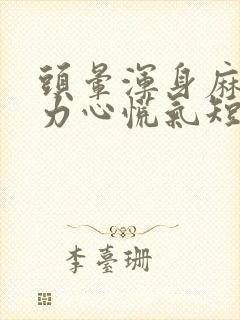 頭暈渾身麻
力心慌氣短
李臺珊